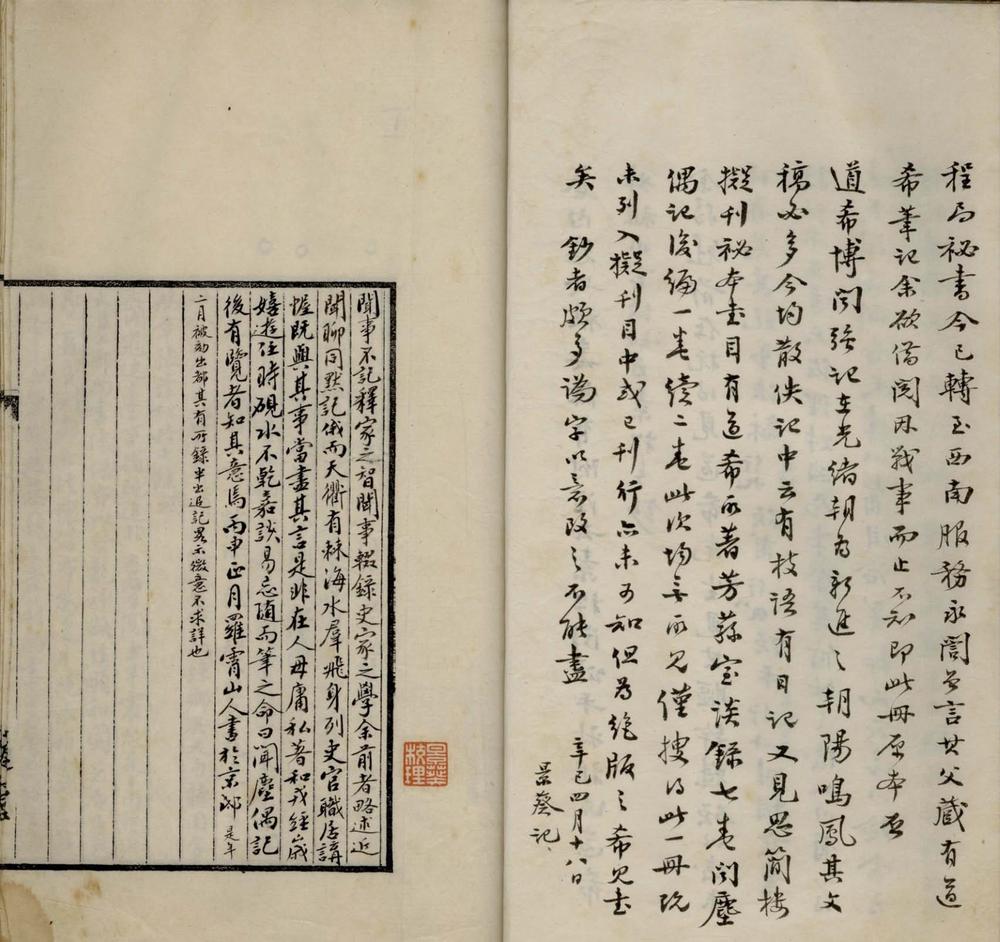 程局秘书今已轉至西南服務永闇曾言其父藏有道
希筆記余欲借閱因戰事而止不知即此冊原本否
道希博聞强記在光緒朝為新進之朝陽鳴鳳其文
稿必多今均散佚記中云有枝語有日記又見思簡樓
擬刊秘本書目有道希所著芳蓀室談錄七卷聞塵
偶記後編一卷續二卷此次均無所見僅搜得此一冊既
未列入擬刊目中或已刊行亦未可知但為絕版之希見書
矣鈔者頗多譌字以意改之不能盡
辛巳四月十八日
景葵記
景葵
校理
聞事不記釋家之智聞事輟錄史家之學余前者略述近
聞聊同默記俄而天衢有棘海水羣飛身列史官職居講
幄既與其事當盡其言是非在人毋庸私著和戎經歲
嬉遊任時硯水不乾嘉談易忘隨而筆之命曰聞塵偶記
後有覽者知其意焉丙申正月羅霄山人書於京邸是年
二月被劾出都其有所錄半出追記畧示微意不求詳也